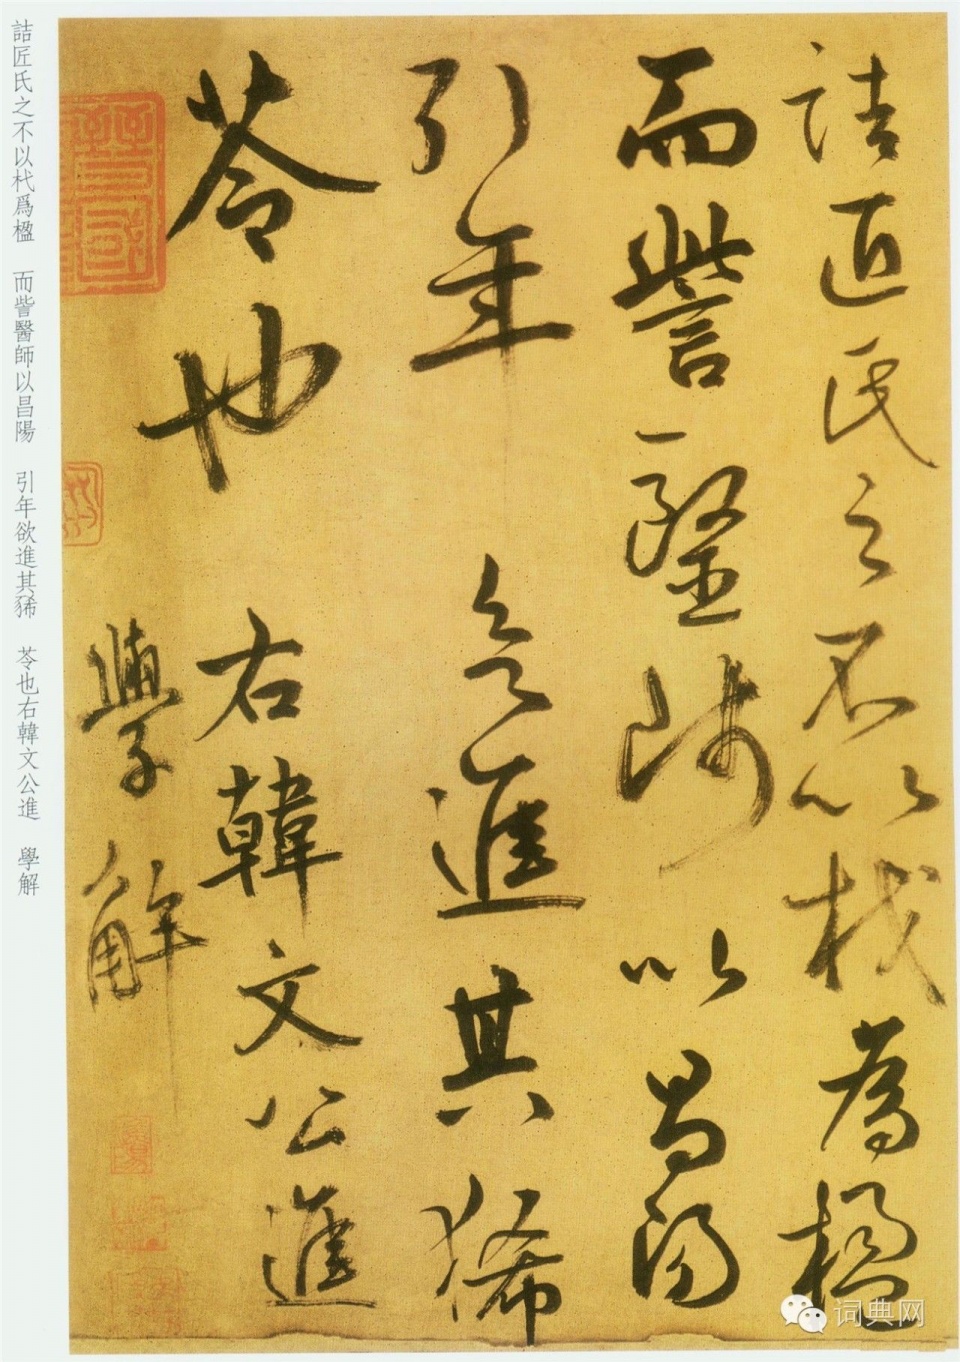 詰匠氏之不以杙為楹
而訾醫師以昌陽
引年欲進其豨
苓也右韓文公進
學解
詰匠氏之不以杙爲楹 而訾醫師以昌陽 引年欲進其豨 苓也右韓文公進 學解
词典网